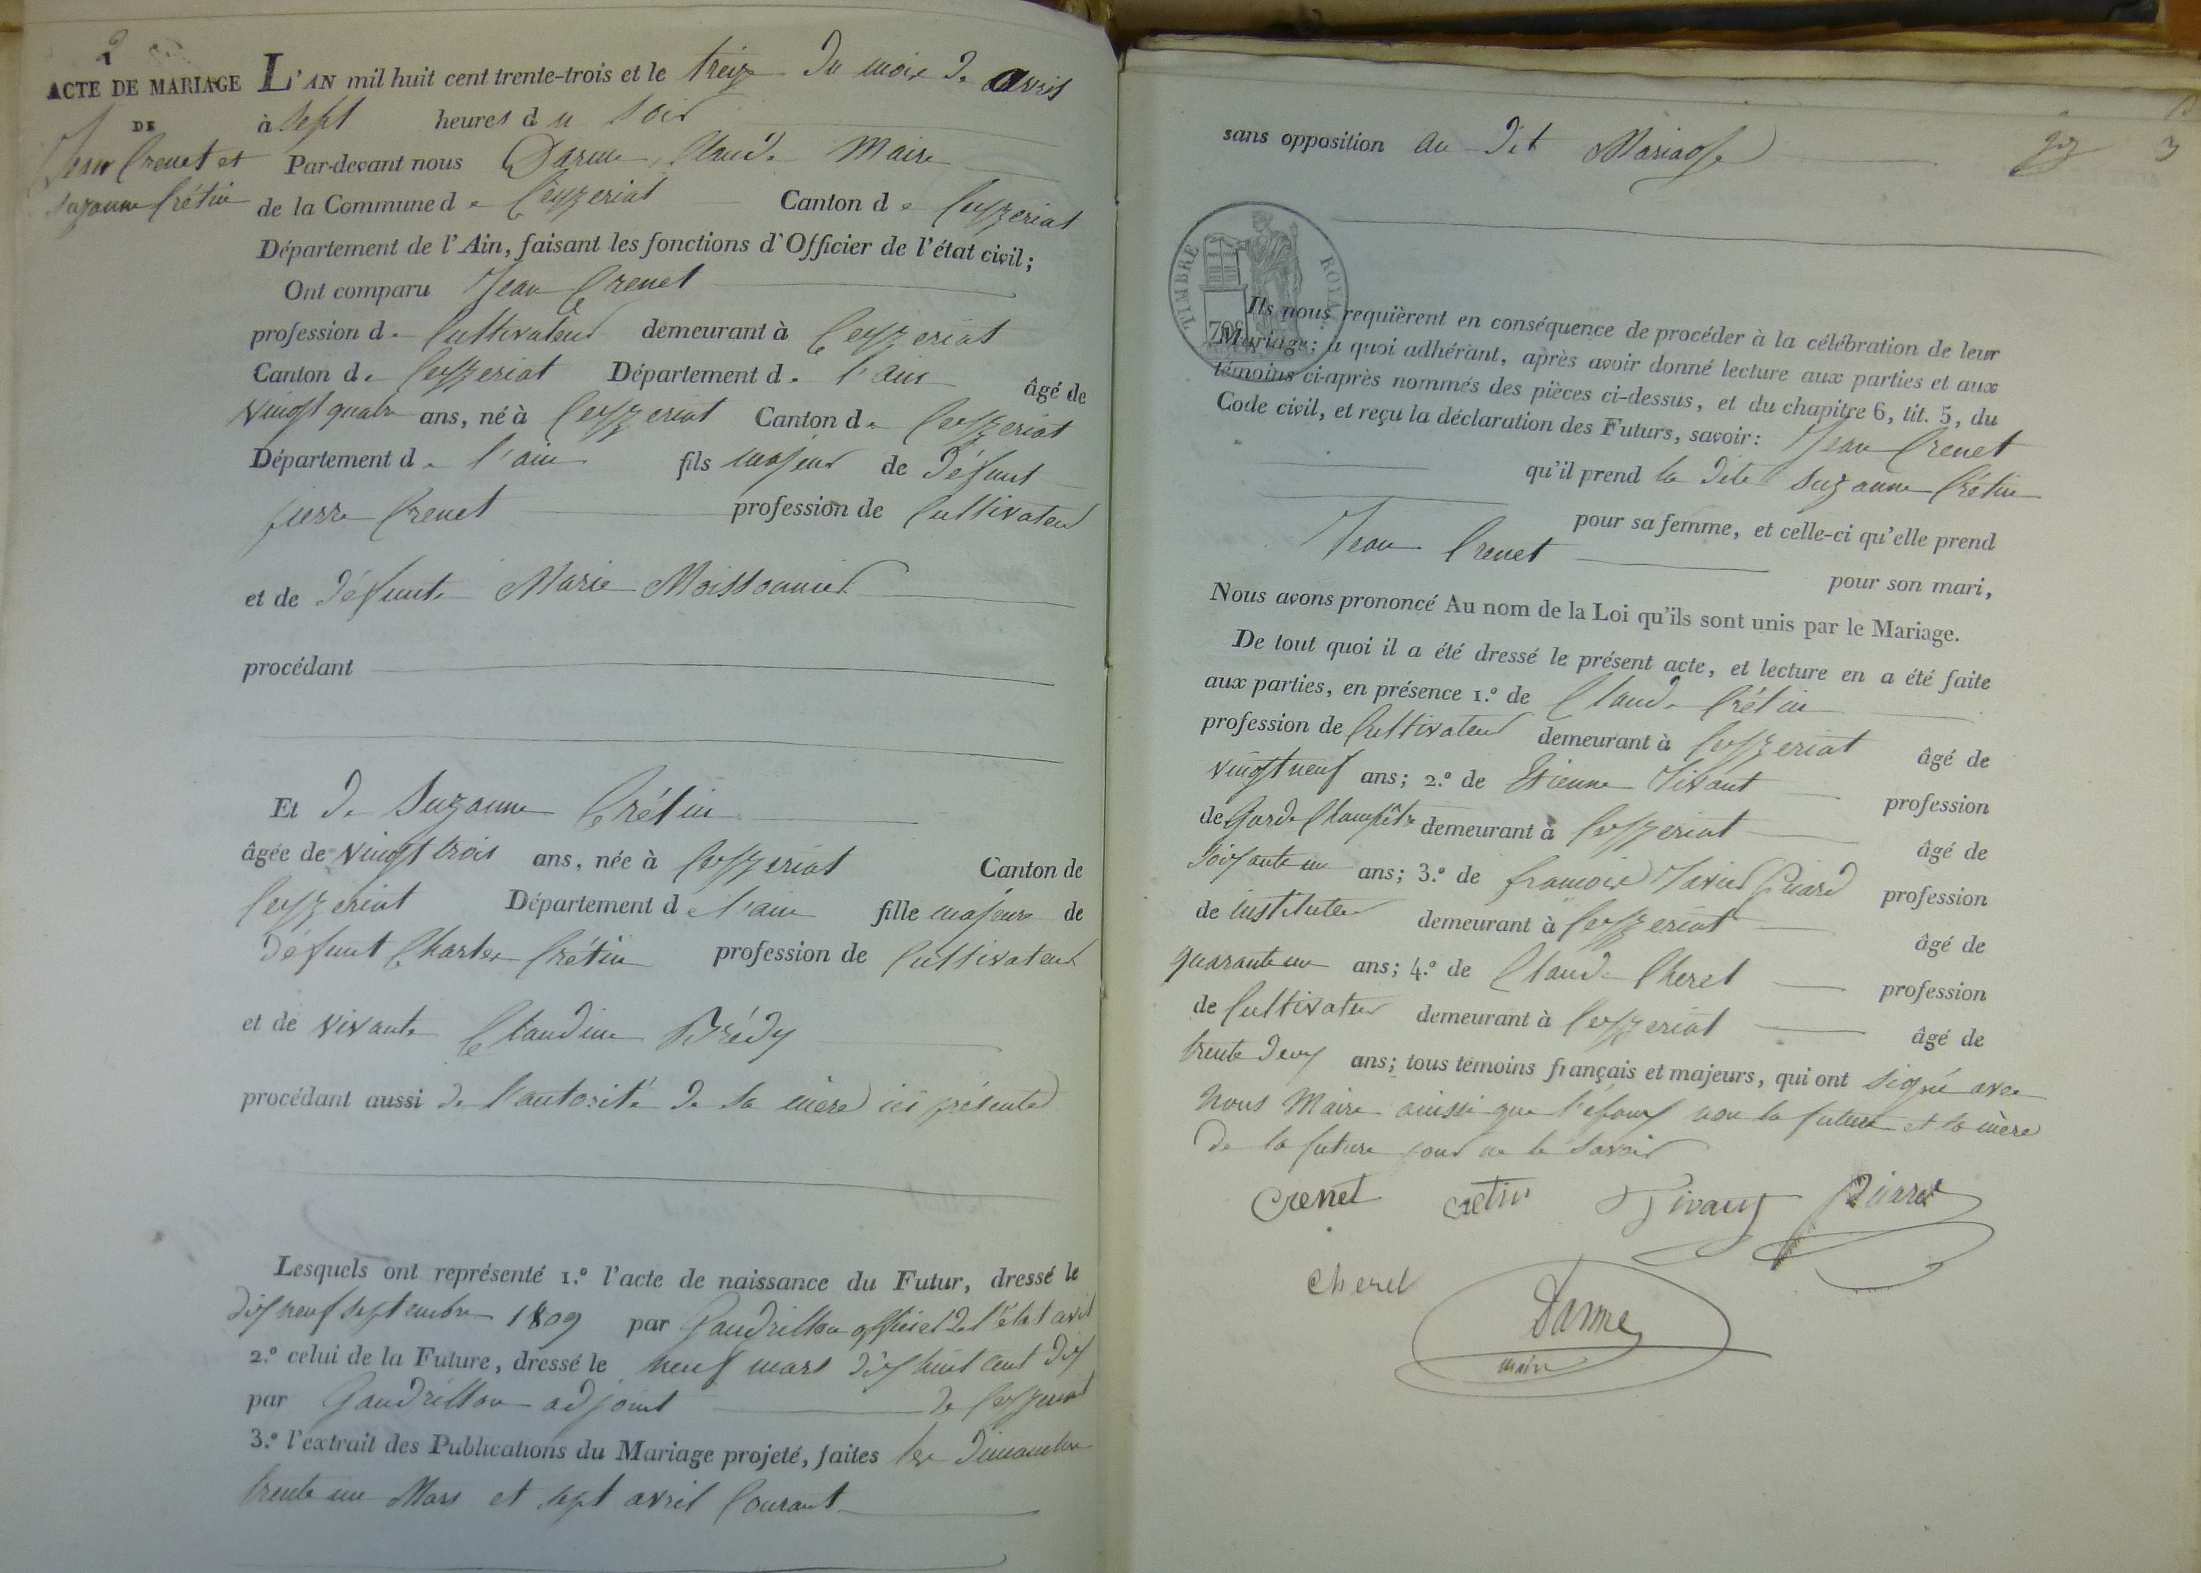 2
ACTE DE MARIAGE
DE
Jean Crenet et
Suzanne Crétin
L'AN mil huit cent trente-trois et le treize du mois de avril
à sept heures du soir
Par-devant nous Darme Claude Maire
de la Commune de Ceyzeriat Canton de Ceyzeriat
Département de l'Ain, faisant les fonctions d'Officier de l'état civil;
Ont comparu Jean Crenet
profession de Cultivateur demeurant à Ceyzeriat
Canton de Ceyzeriat Département de l'ain âgé de
vingt quatre ans, né à Ceyzeriat Canton de Ceyzeriat
Département de l'ain fils majeur de défunt
pierre Crenet profession de Cultivateur
et de défunte Marie Moissonnier
procédant
Et de Suzanne Crétin
âgée de vingt trois ans, née à Ceyzeriat Canton de
Ceyzeriat Département de l'ain fille majeure de
défunt Charles Crétin profession de Cultivateur
et de vivante Claudine Brédy
procédant aussi de l'autorité de sa mère ici présente
Lesquels ont représenté 1.º l'acte de naissance du Futur, dressé le
dix neuf septembre 1809 par Gaudrillon officier de l'état civil
2.º celui de la Future, dressé le neuf mars dix huit cent dix
par Gaudrillon adjoint de Ceyzeriat
3.º l'extrait des Publications du Mariage projeté, faites les dimanches
trente un Mars et sept avril Courant
3
sans opposition au dit Mariage
TIMBRE ROYAL
Ils nous requièrent en conséquence de procéder à la célébration de leur
Mariage; à quoi adhérant, après avoir donné lecture aux parties et aux
témoins ci-après nommés des pièces ci-dessus, et du chapitre 6, tit. 5, du
Code civil, et reçu la déclaration des Futurs, savoir: Jean Crenet
qu'il prend la dite Suzanne Crétin
pour sa femme, et celle-ci qu'elle prend
Jean Crenet
pour son mari,
Nous avons prononcé Au nom de la Loi qu'ils sont unis par le Mariage.
De tout quoi il a été dressé le présent acte, et lecture en a été faite
aux parties, en présence 1.º de Claude Crétin
profession de Cultivateur demeurant à Ceyzeriat âgé de
vingt neuf ans; 2.º de Etienne Tivant profession
de Garde Champêtre demeurant à Ceyzeriat âgé de
soixante un ans; 3.º de francois Xavier Puard profession
de instituteur demeurant à Ceyzeriat âgé de
quarante un ans; 4.º de Claude Cheret profession
de Cultivateur demeurant à Ceyzeriat âgé de
trente deux ans; tous témoins français et majeurs, qui ont signé avec
nous Maire ainsi que l'époux non la future et la mère
de la future pour ne le savoir
Crenet Cretin Tivant Puard
Cheret
Darme
maire